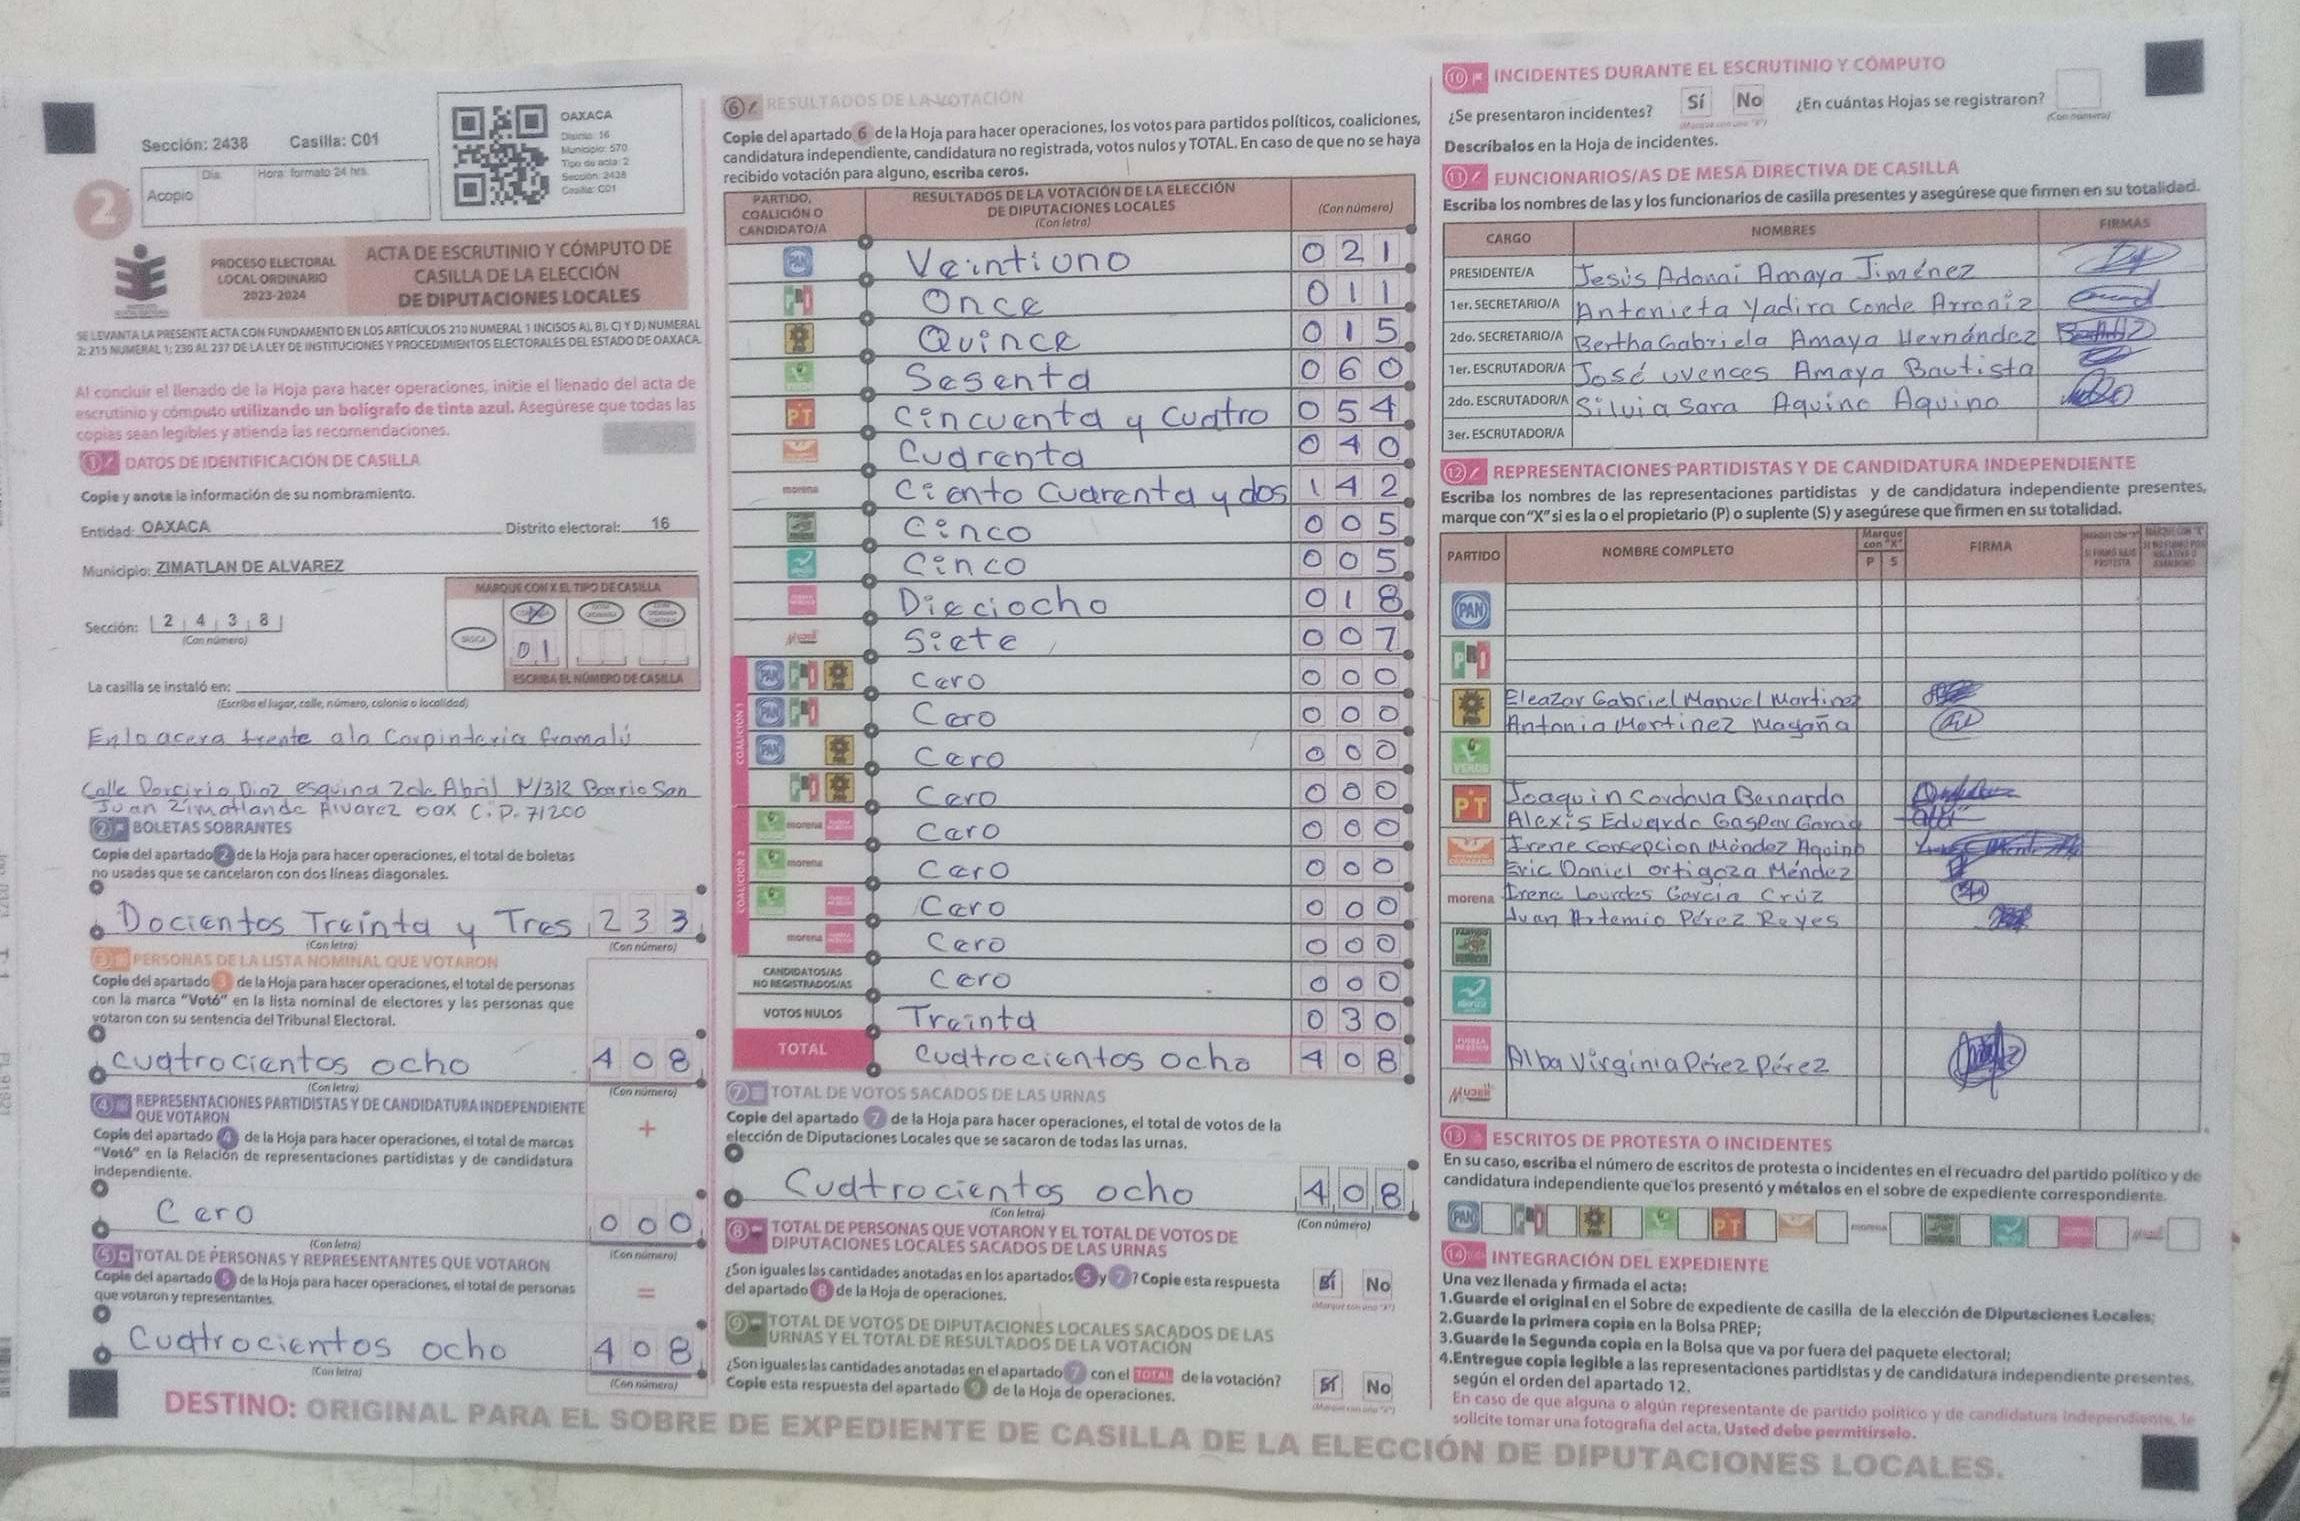 Sección: 2438 Casilla: C01
Día Hora: formato 24 hrs.
Acopio
2
OAXACA
Distrito: 16
Municipio: 570
Tipo de acta: 2
Sección: 2438
Casilla: C01
PROCESO ELECTORAL
LOCAL ORDINARIO
2023-2024
ACTA DE ESCRUTINIO Y CÓMPUTO DE
CASILLA DE LA ELECCIÓN
DE DIPUTACIONES LOCALES
SE LEVANTA LA PRESENTE ACTA CON FUNDAMENTO EN LOS ARTÍCULOS 210 NUMERAL 1 INCISOS A), B), C) Y D) NUMERAL
2; 215 NUMERAL 1; 230 AL 237 DE LA LEY DE INSTITUCIONES Y PROCEDIMIENTOS ELECTORALES DEL ESTADO DE OAXACA.
Al concluir el llenado de la Hoja para hacer operaciones, inicie el llenado del acta de
escrutinio y cómputo utilizando un bolígrafo de tinta azul. Asegúrese que todas las
copias sean legibles y atienda las recomendaciones.
1 DATOS DE IDENTIFICACIÓN DE CASILLA
Copie y anote la información de su nombramiento.
Entidad: OAXACA Distrito electoral: 16
Municipio: ZIMATLAN DE ALVAREZ
MARQUE CON X EL TIPO DE CASILLA
Sección: 2 4 3 8
(Con número)
BÁSICA
01
ESCRIBA EL NÚMERO DE CASILLA
La casilla se instaló en:
(Escriba el lugar, calle, número, colonia o localidad)
En la acera frente a la Carpinteria framalú
Calle Porcirio Diaz esquina 2 de Abril N/312 Barrio San
Juan Zimatlande Alvarez oax C.P. 71200
2 BOLETAS SOBRANTES
Copie del apartado 2 de la Hoja para hacer operaciones, el total de boletas
no usadas que se cancelaron con dos líneas diagonales.
Docientos Treinta y Tres 233
(Con letra) (Con número)
3 PERSONAS DE LA LISTA NOMINAL QUE VOTARON
Copie del apartado 3 de la Hoja para hacer operaciones, el total de personas
con la marca "Votó" en la lista nominal de electores y las personas que
votaron con su sentencia del Tribunal Electoral.
Cuatrocientos ocho 408
(Con letra) (Con número)
4 REPRESENTACIONES PARTIDISTAS Y DE CANDIDATURA INDEPENDIENTE
QUE VOTARON
Copie del apartado 4 de la Hoja para hacer operaciones, el total de marcas
"Votó" en la Relación de representaciones partidistas y de candidatura
independiente.
+
Cero 000
(Con letra) (Con número)
5 TOTAL DE PERSONAS Y REPRESENTANTES QUE VOTARON
Copie del apartado 5 de la Hoja para hacer operaciones, el total de personas
que votaron y representantes.
=
Cuatrocientos ocho 408
(Con letra) (Con número)
6 RESULTADOS DE LA VOTACIÓN
Copie del apartado 6 de la Hoja para hacer operaciones, los votos para partidos políticos, coaliciones,
candidatura independiente, candidatura no registrada, votos nulos y TOTAL. En caso de que no se haya
recibido votación para alguno, escriba ceros.
PARTIDO,
COALICIÓN O
CANDIDATO/A
RESULTADOS DE LA VOTACIÓN DE LA ELECCIÓN
DE DIPUTACIONES LOCALES
(Con letra)
(Con número)
PAN Veintiuno 021
PRI Once 011
Quince 015
Sesenta 060
PT Cincuenta y cuatro 054
Cuarenta 040
morena Ciento Cuarenta y dos 142
Cinco 005
Cinco 005
Dieciocho 018
Siete 007
COALICIÓN 1
PAN PRI Cero 000
PAN PRI Cero 000
PAN Cero 000
PRI Cero 000
COALICIÓN 2
morena Cero 000
morena Cero 000
Cero 000
morena Cero 000
CANDIDATOS/AS
NO REGISTRADOS/AS
Cero 000
VOTOS NULOS Treinta 030
TOTAL Cuatrocientos ocho 408
7 TOTAL DE VOTOS SACADOS DE LAS URNAS
Copie del apartado 7 de la Hoja para hacer operaciones, el total de votos de la
elección de Diputaciones Locales que se sacaron de todas las urnas.
Cuatrocientos ocho 408
(Con letra) (Con número)
8 TOTAL DE PERSONAS QUE VOTARON Y EL TOTAL DE VOTOS DE
DIPUTACIONES LOCALES SACADOS DE LAS URNAS
¿Son iguales las cantidades anotadas en los apartados 5 y 7? Copie esta respuesta
del apartado 8 de la Hoja de operaciones.
Sí No
(Marque con una "X")
9 TOTAL DE VOTOS DE DIPUTACIONES LOCALES SACADOS DE LAS
URNAS Y EL TOTAL DE RESULTADOS DE LA VOTACIÓN
¿Son iguales las cantidades anotadas en el apartado 7 con el TOTAL de la votación?
Copie esta respuesta del apartado 9 de la Hoja de operaciones.
Sí No
(Marque con una "X")
10 INCIDENTES DURANTE EL ESCRUTINIO Y CÓMPUTO
¿Se presentaron incidentes? Sí No ¿En cuántas Hojas se registraron?
(Marque con una "X") (Con número)
Descríbalos en la Hoja de incidentes.
11 FUNCIONARIOS/AS DE MESA DIRECTIVA DE CASILLA
Escriba los nombres de las y los funcionarios de casilla presentes y asegúrese que firmen en su totalidad.
CARGO NOMBRES FIRMAS
PRESIDENTE/A Jesús Adonai Amaya Jiménez
1er. SECRETARIO/A Antonieta Yadira Conde Arroniz
2do. SECRETARIO/A Bertha Gabriela Amaya Hernández
1er. ESCRUTADOR/A José uvences Amaya Bautista
2do. ESCRUTADOR/A Silvia Sara Aquino Aquino
3er. ESCRUTADOR/A
12 REPRESENTACIONES PARTIDISTAS Y DE CANDIDATURA INDEPENDIENTE
Escriba los nombres de las representaciones partidistas y de candidatura independiente presentes,
marque con "X" si es la o el propietario (P) o suplente (S) y asegúrese que firmen en su totalidad.
PARTIDO NOMBRE COMPLETO Marque con "X" P S FIRMA
PAN
PRI
Eleazar Gabriel Manuel Martinez
Antonia Martinez Magaña
VERDE
PT Joaquin Cordova Bernardo
Alexis Eduardo Gaspar Garcia
Irene Concepcion Méndez Aquino
Eric Daniel ortigoza Méndez
morena Irene Lourdes Garcia Cruz
Juan Artemio Pérez Reyes
Alba Virginia Pérez Pérez
MUJER
13 ESCRITOS DE PROTESTA O INCIDENTES
En su caso, escriba el número de escritos de protesta o incidentes en el recuadro del partido político y de
candidatura independiente que los presentó y métalos en el sobre de expediente correspondiente.
PAN PRI PT morena
14 INTEGRACIÓN DEL EXPEDIENTE
Una vez llenada y firmada el acta:
1.Guarde el original en el Sobre de expediente de casilla de la elección de Diputaciones Locales;
2.Guarde la primera copia en la Bolsa PREP;
3.Guarde la Segunda copia en la Bolsa que va por fuera del paquete electoral;
4.Entregue copia legible a las representaciones partidistas y de candidatura independiente presentes,
según el orden del apartado 12.
En caso de que alguna o algún representante de partido político y de candidatura independiente, le
solicite tomar una fotografía del acta, Usted debe permitírselo.
DESTINO: ORIGINAL PARA EL SOBRE DE EXPEDIENTE DE CASILLA DE LA ELECCIÓN DE DIPUTACIONES LOCALES.